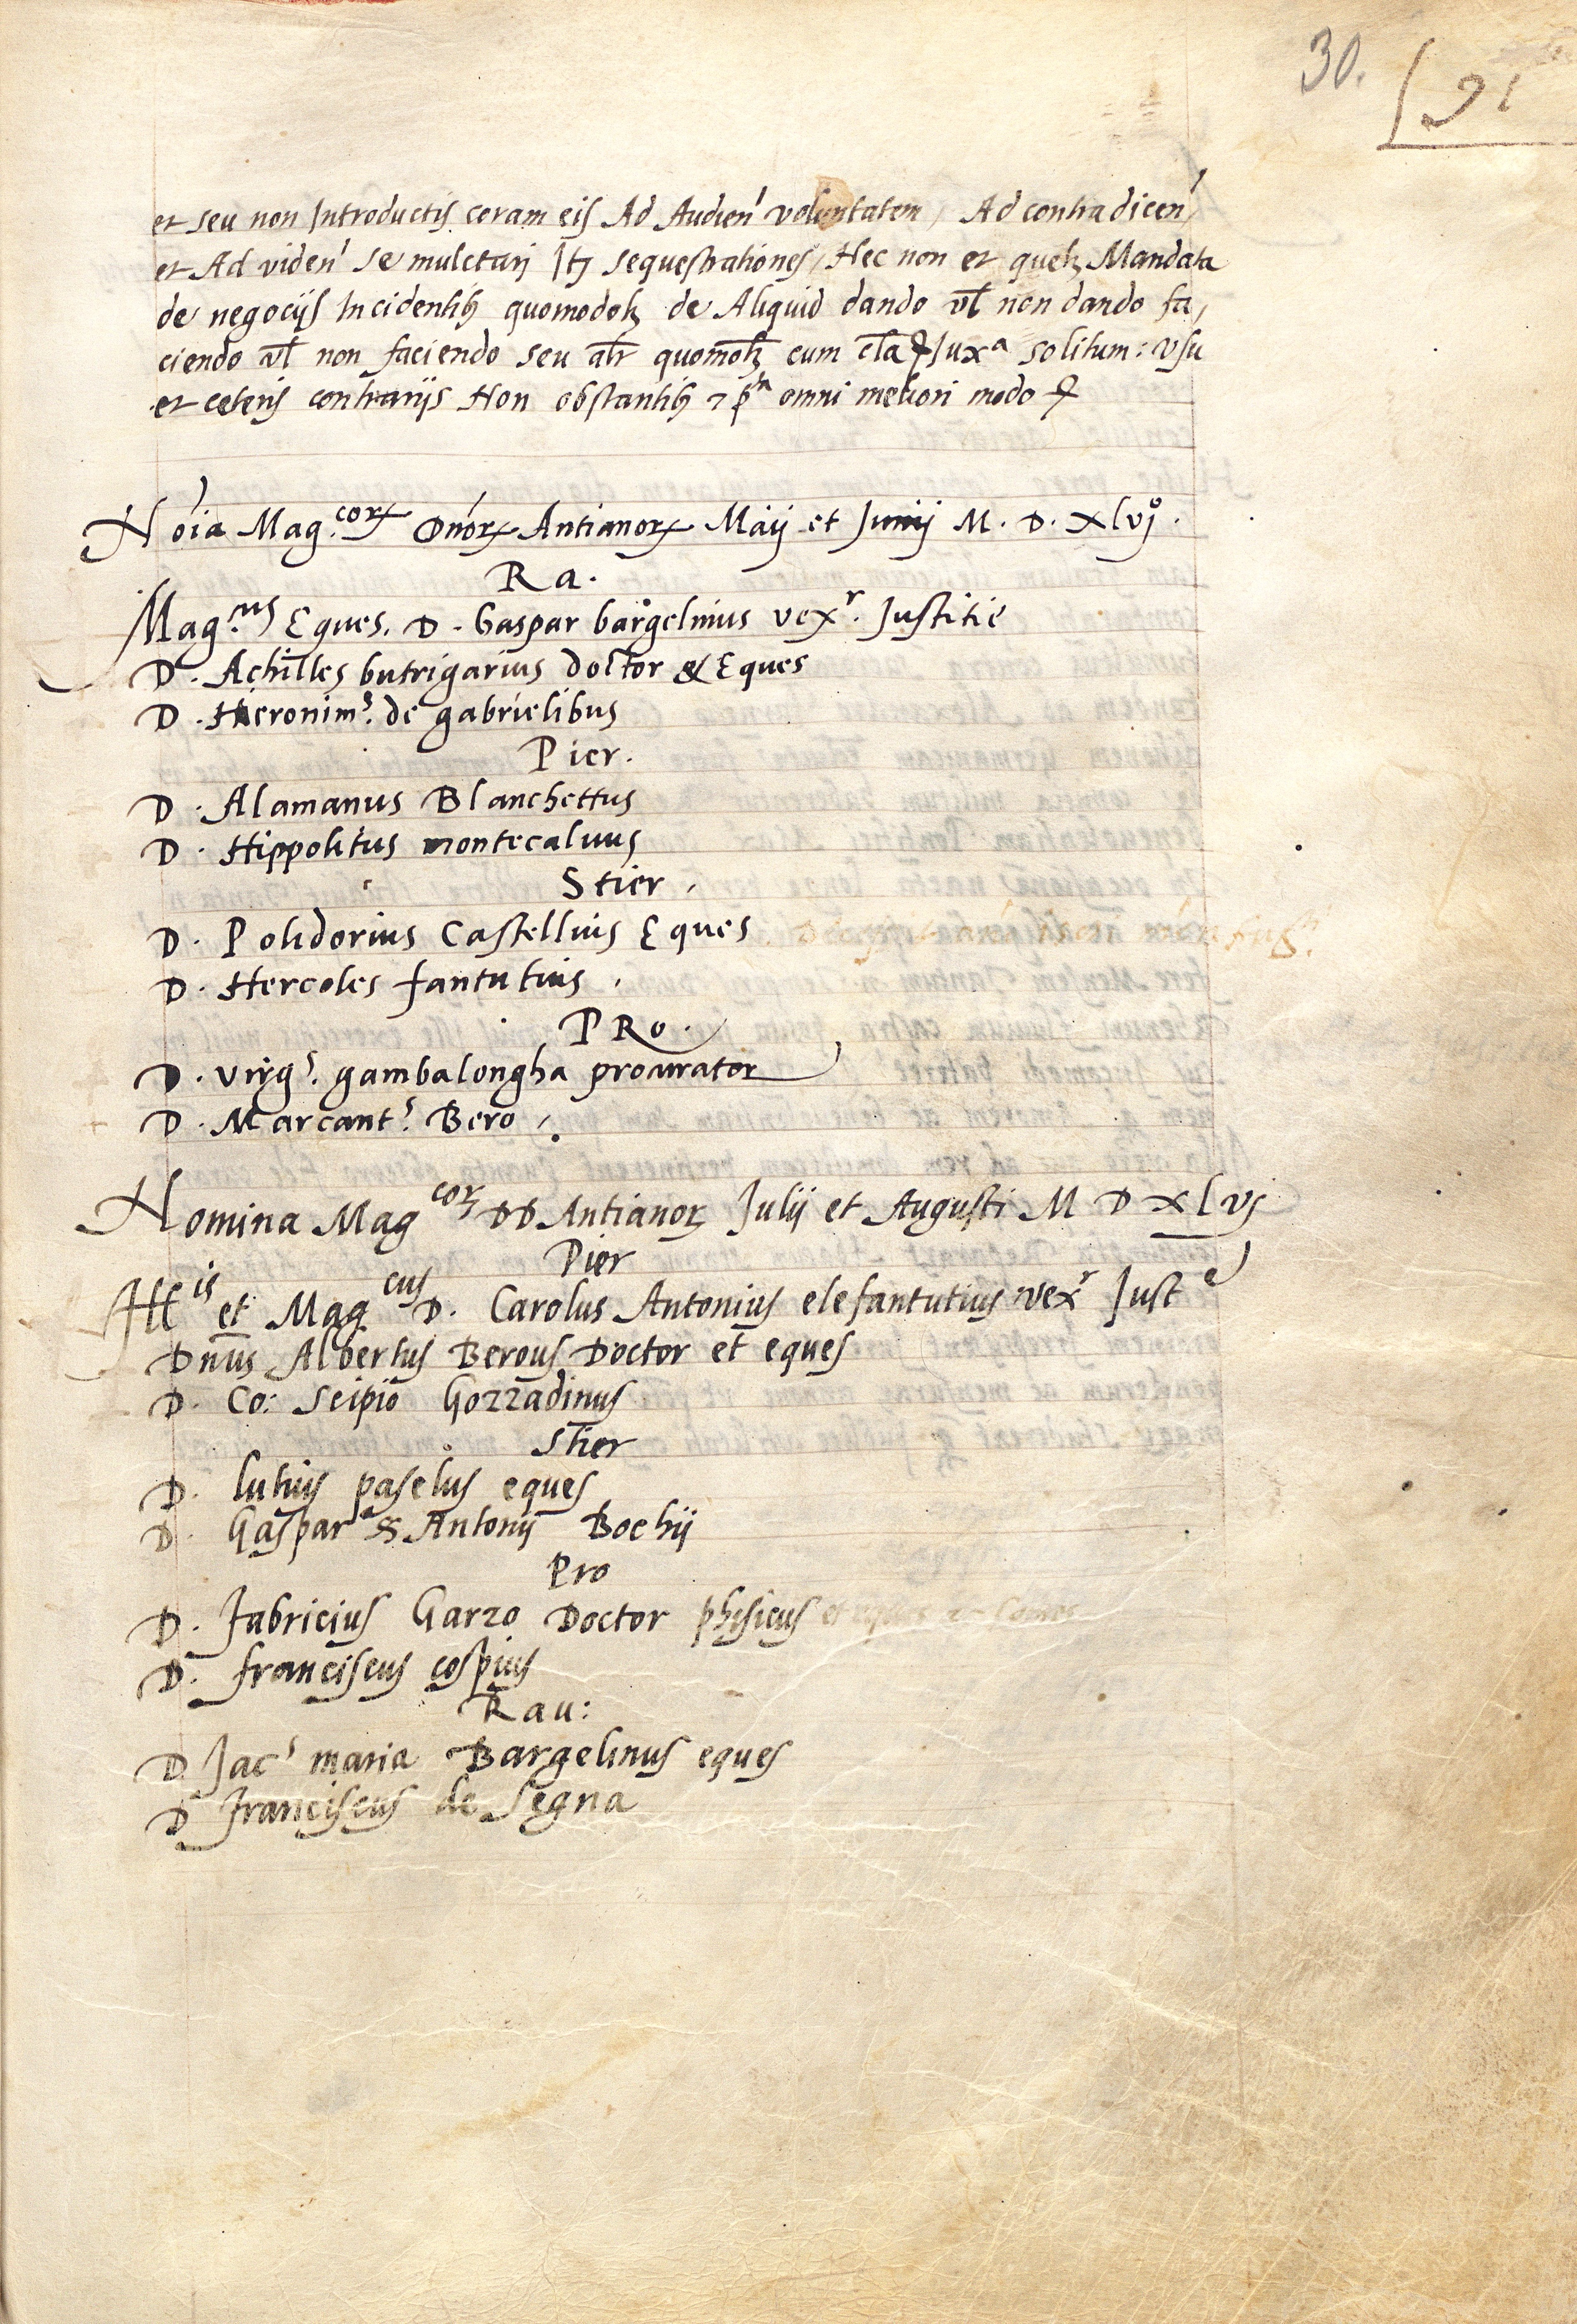 30.
91
et seu non Introductis coram eis Ad Audien' voluntatem, Ad contradicen'
et Ad viden' se mulctari Itz sequestrationes, Nec non et quelz Mandata
de negocijs Incidentibz quomodolz de Aliquid dando vl non dando fa,
ciendo vl non faciendo seu alr quomolz cum cla Juxa solitum: vsu
et ceteris contrarijs Non obstantibz omni meliori modo
Noia Mag.cor Dnor Antianor Maij et Junij M. D. xlvjo.
Ra.
Mag.cus Eques. D. Gaspar bargelinus vexr. Justitie
D. Achilles butrigarius doctor & Eques
D. Hieronims. de gabrielibus
Pier.
D. Alamanus Blanchettus
D. Hippolitus montecaluus
Stier.
D. Polidorius Castellius Eques
D. Hercoles fantutius.
PRo.
D. Virgs. gambalongha procurator
D. Marcants. Bero.
Nomina Mag cor DD Antianor Julij et Augusti M D xlvj
Pier
Illis et Mag cus D. Carolus Antonius elefantutius vexr Juste
Dnus Albertus Berous Doctor et eques
D. Co: Scipio Gozzadinus
Stier
D. lutius paselus eques
D. Gaspar Antonij Bochij
Pro
D. Fabricius Garzo Doctor phisicus et eques
D. franciscus cospius
Rau:
D Jacs maria Bargelinus eques
D Franciscus de Segna